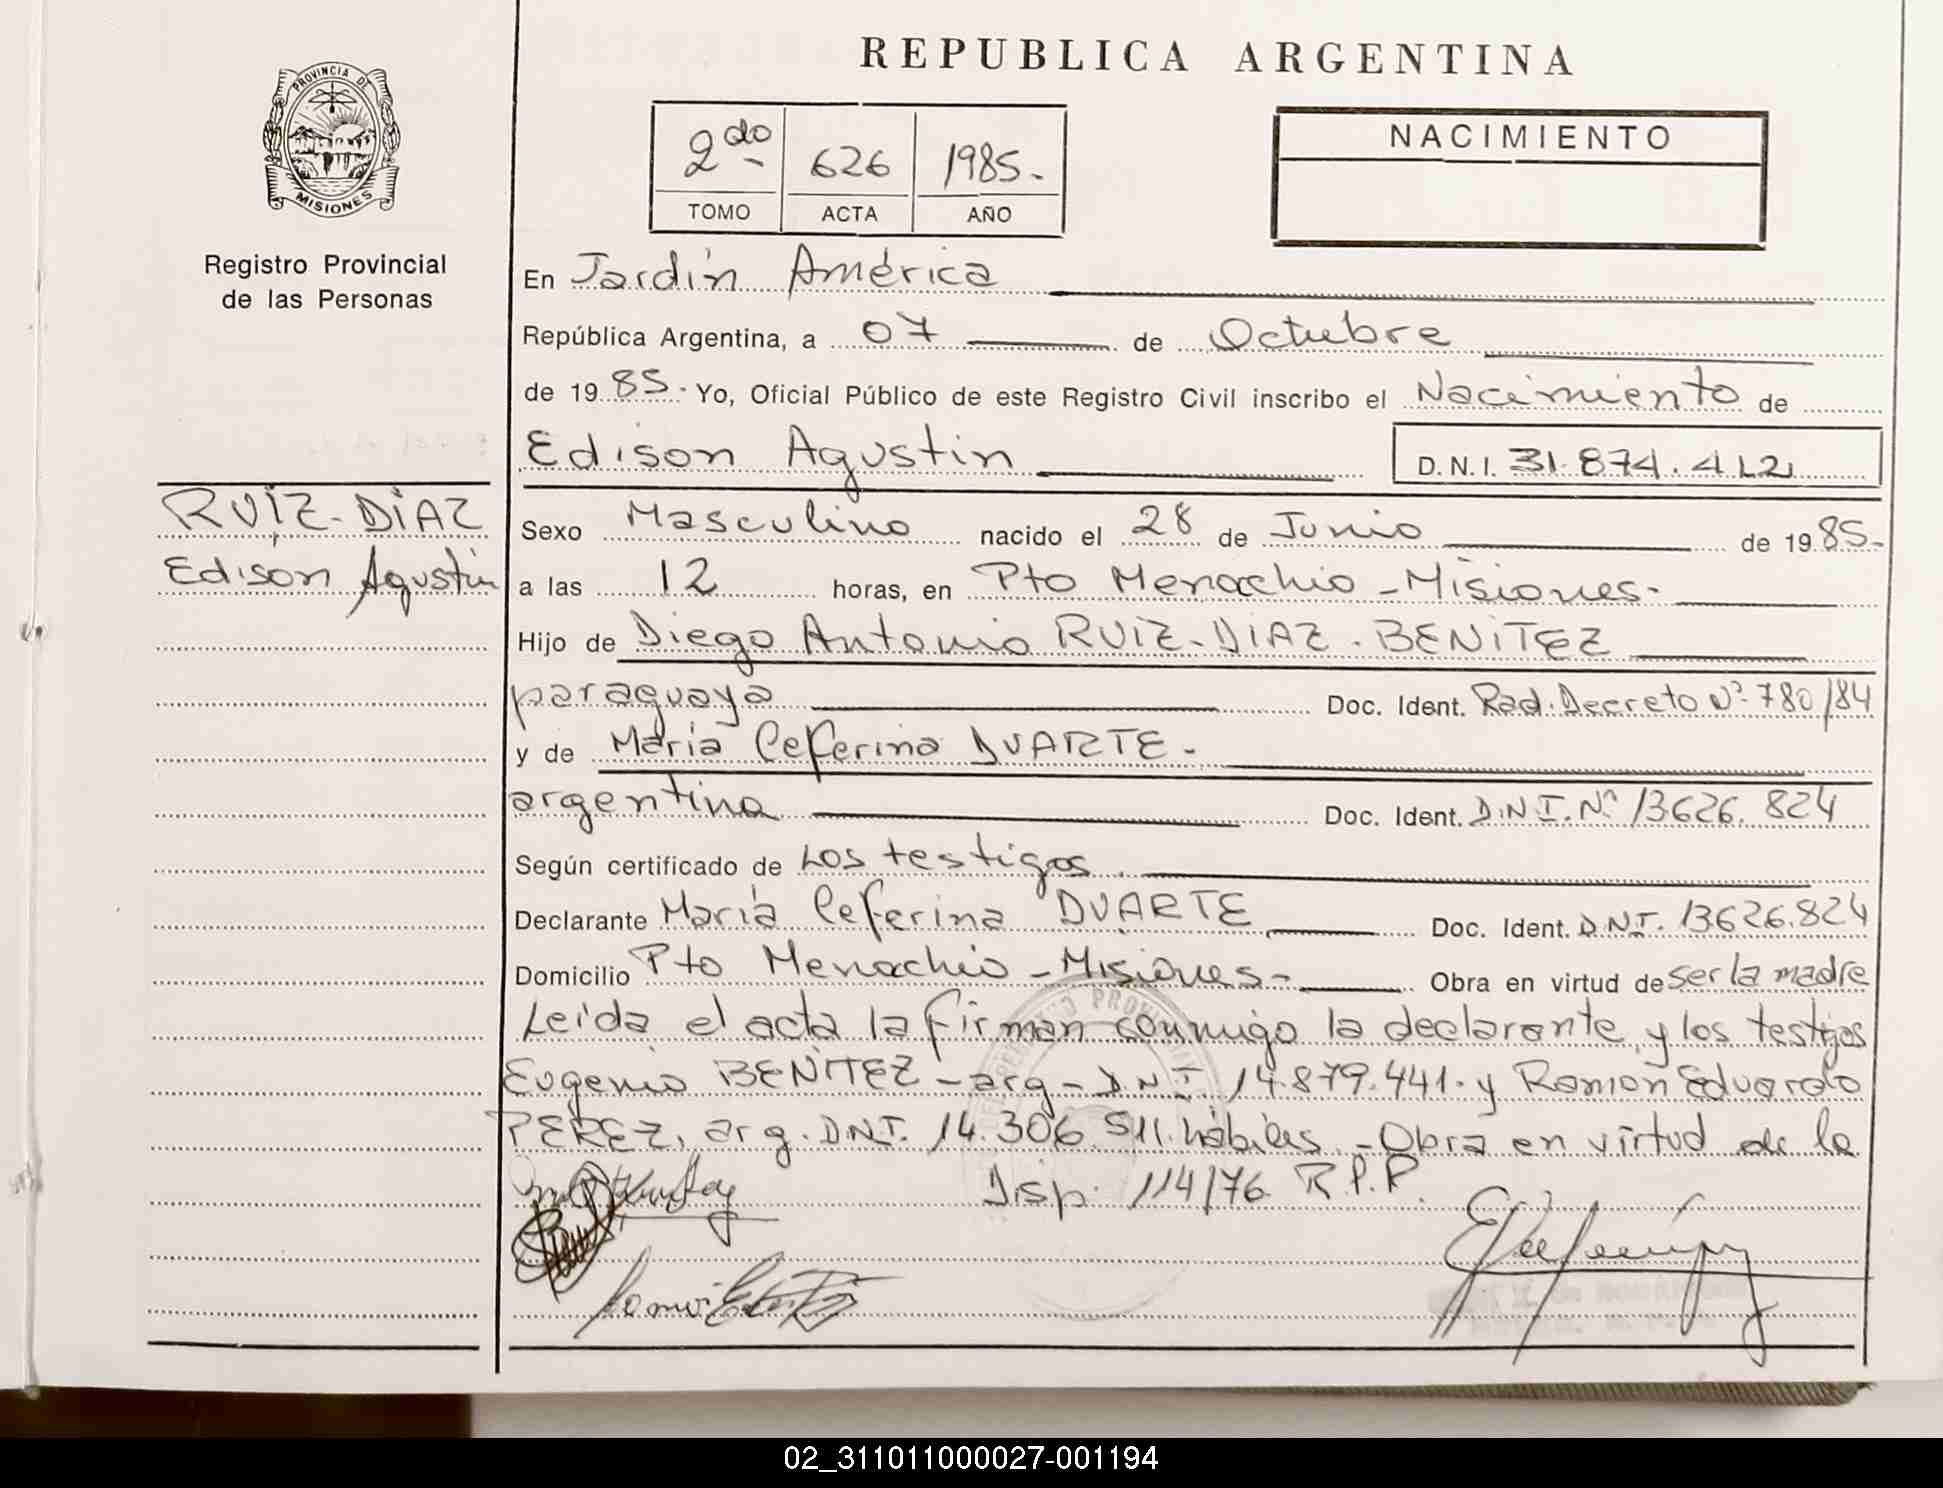 REPUBLICA ARGENTINA
PROVINCIA DE
MISIONES
Registro Provincial
de las Personas
2do 626 1985.-
TOMO ACTA AÑO
NACIMIENTO
En Jardín América
República Argentina, a 07 de Octubre
de 1985.- Yo, Oficial Público de este Registro Civil inscribo el Nacimiento de
Edison Agustin D.N.I. 31.874.412
RUIZ-DIAZ
Edison Agustin
Sexo Masculino nacido el 28 de Junio de 1985.-
a las 12 horas, en Pto Menochio - Misiones.-
Hijo de Diego Antonio RUIZ-DIAZ. BENITEZ
paraguaya Doc. Ident. Rad. Decreto Nº 780/84
y de María Ceferina DUARTE.-
argentina Doc. Ident. D.N.I. Nº 13626.824
Según certificado de Los testigos.
Declarante María Ceferina DUARTE Doc. Ident. D.N.I. 13626.824
Domicilio Pto Menochio - Misiones.- Obra en virtud de ser la madre
Leída el acta la firman conmigo la declarante y los testigos
Eugenio BENITEZ - arg - D.N.I. 14.879.441. y Ramon Eduardo
PEREZ, arg. D.N.I. 14.306.511. hábiles. - Obra en virtud de la
Disp. 114/76 R.P.P.
02_311011000027-001194